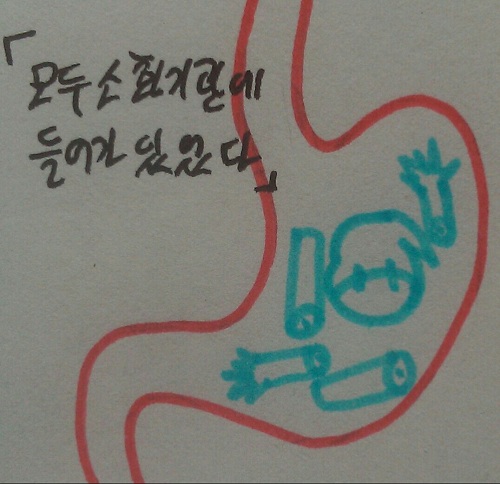 「모두 소화기관에
들어가 있었다」